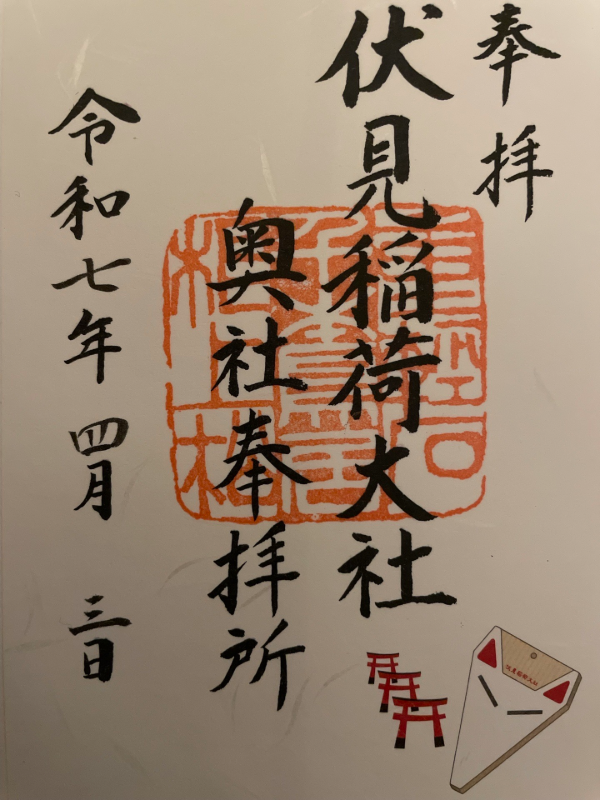 奉拝
伏見稲荷大社
奥社奉拝所
令和七年 四月 三日
伏見稲荷大社